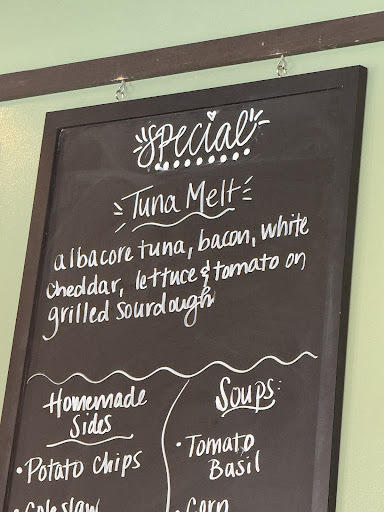 Special
Tuna Melt
albacore tuna, bacon, white
cheddar, lettuce & tomato on
grilled sourdough
Homemade
Sides
• Potato Chips
• Coleslaw
Soups:
• Tomato
Basil
• Corn